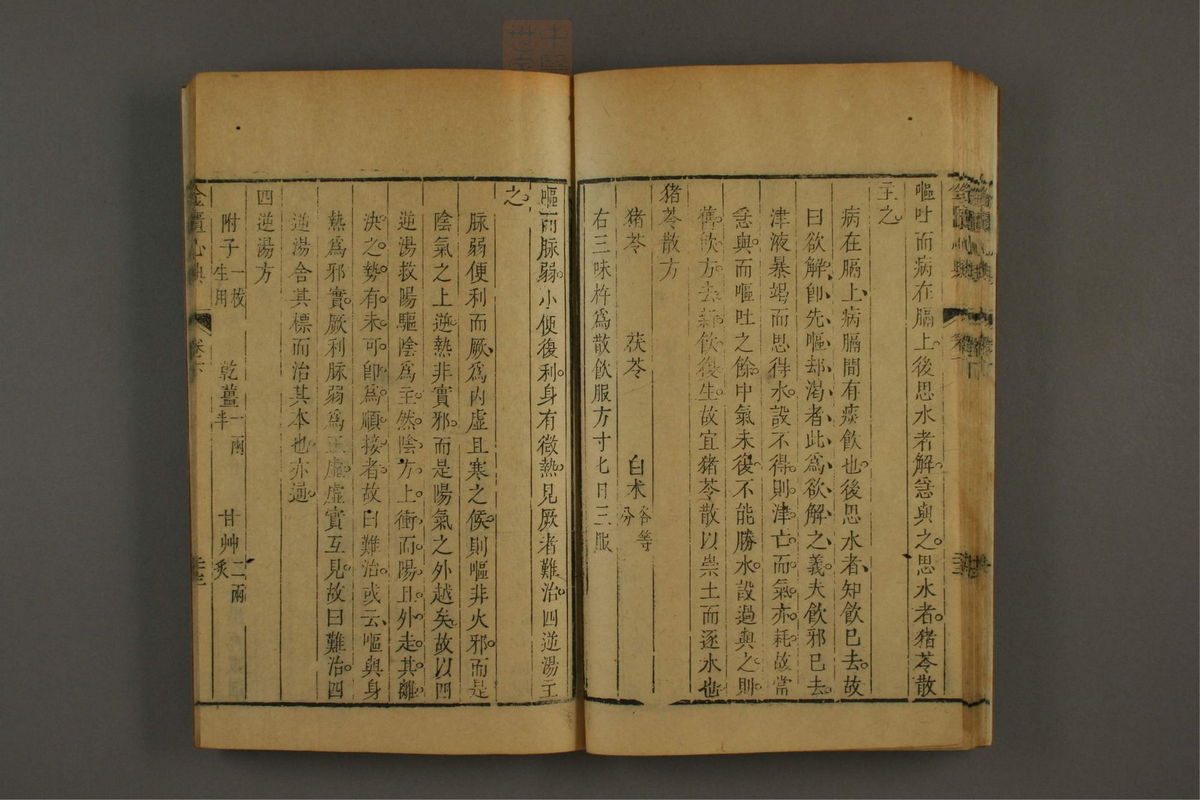 嘔吐而病在膈上後思水者解急與之思水者猪苓散
主之
病在膈上病膈間有痰飲也後思水者知飲已去故
曰欲解卽先嘔却渴者此為欲解之義夫飲邪已去
津液暴竭而思得水設不得則津亡而氣亦耗故當
急與而嘔吐之餘中氣未復不能勝水設過與之則
舊飲方去新飲復生故宜猪苓散以崇土而逐水也
猪苓散方
猪苓 茯苓 白朮各等分
右三味杵為散飲服方寸七日三服
嘔而脉弱小便復利身有微熱見厥者難治四逆湯主
之
脉弱便利而厥為內虛且寒之候則嘔非火邪而是
陰氣之上逆熱非實邪而是陽氣之外越矣故以四
逆湯救陽驅陰為主然陰方上衝而陽且外走其離
決之勢有未可卽為順接者故曰難治或云嘔與身
熱為邪實厥利脉弱為正虛虛實互見故曰難治四
逆湯舍其標而治其本也亦通
四逆湯方
附子一枚生用 乾薑一兩半 甘艸二兩炙
金匱心典 卷下